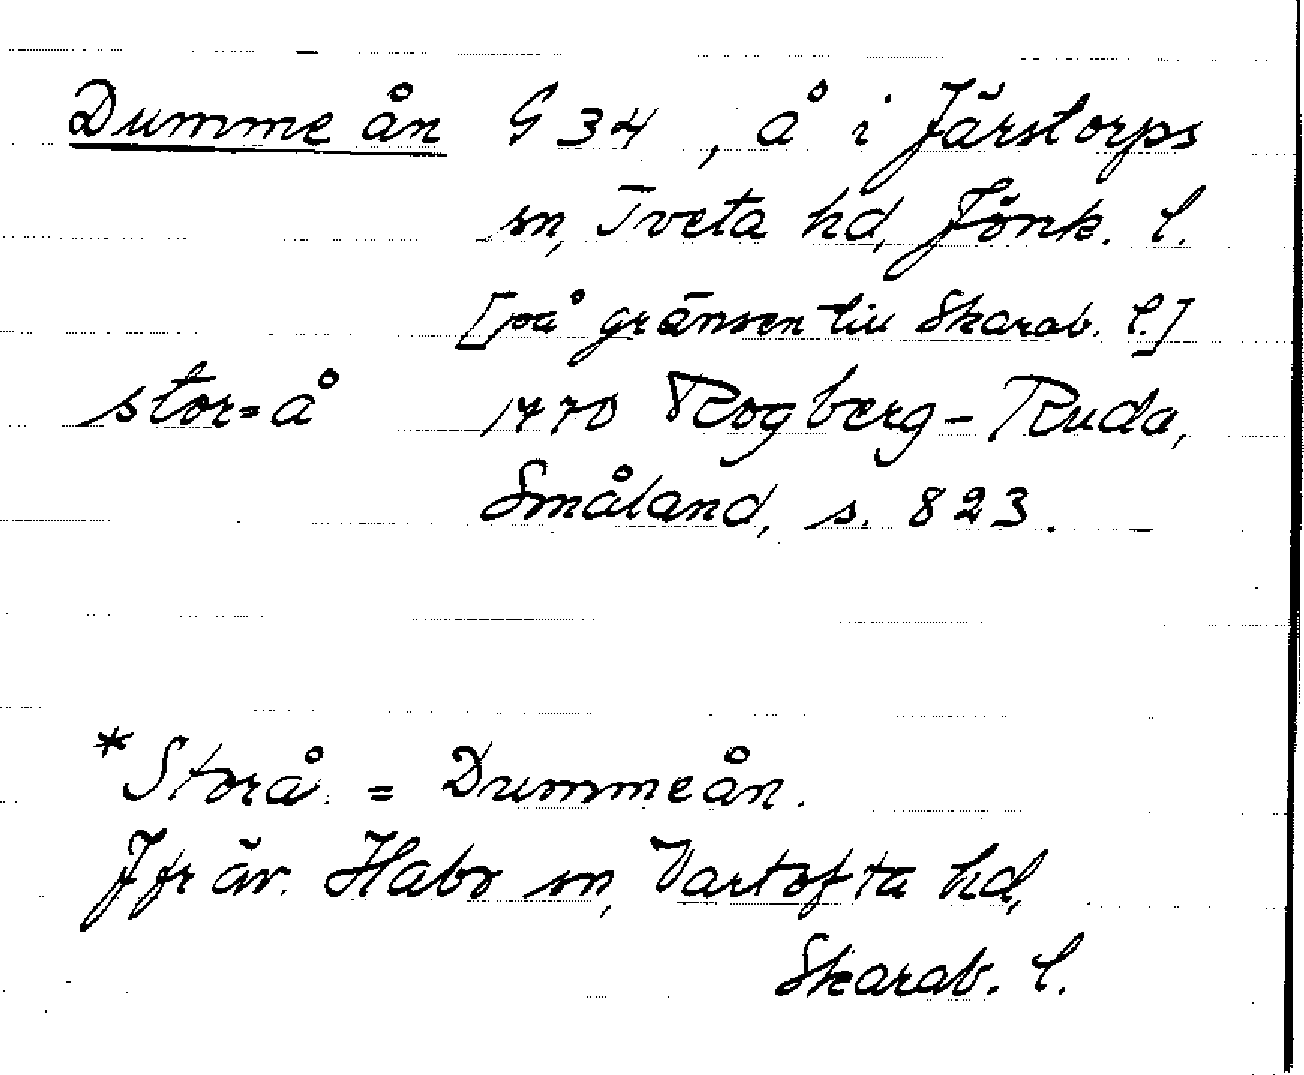 Dumme ån G 34, å i Järstorps
sn, Tveta hd, Jönk. l.
[på gränsen till Skarab. l.]
stor=å 1770 Rogberg - Ruda,
Småland, s. 823.
*Storå = Dummeån.
Jfr äv. Habo sn, Vartofta hd,
Skarab. l.